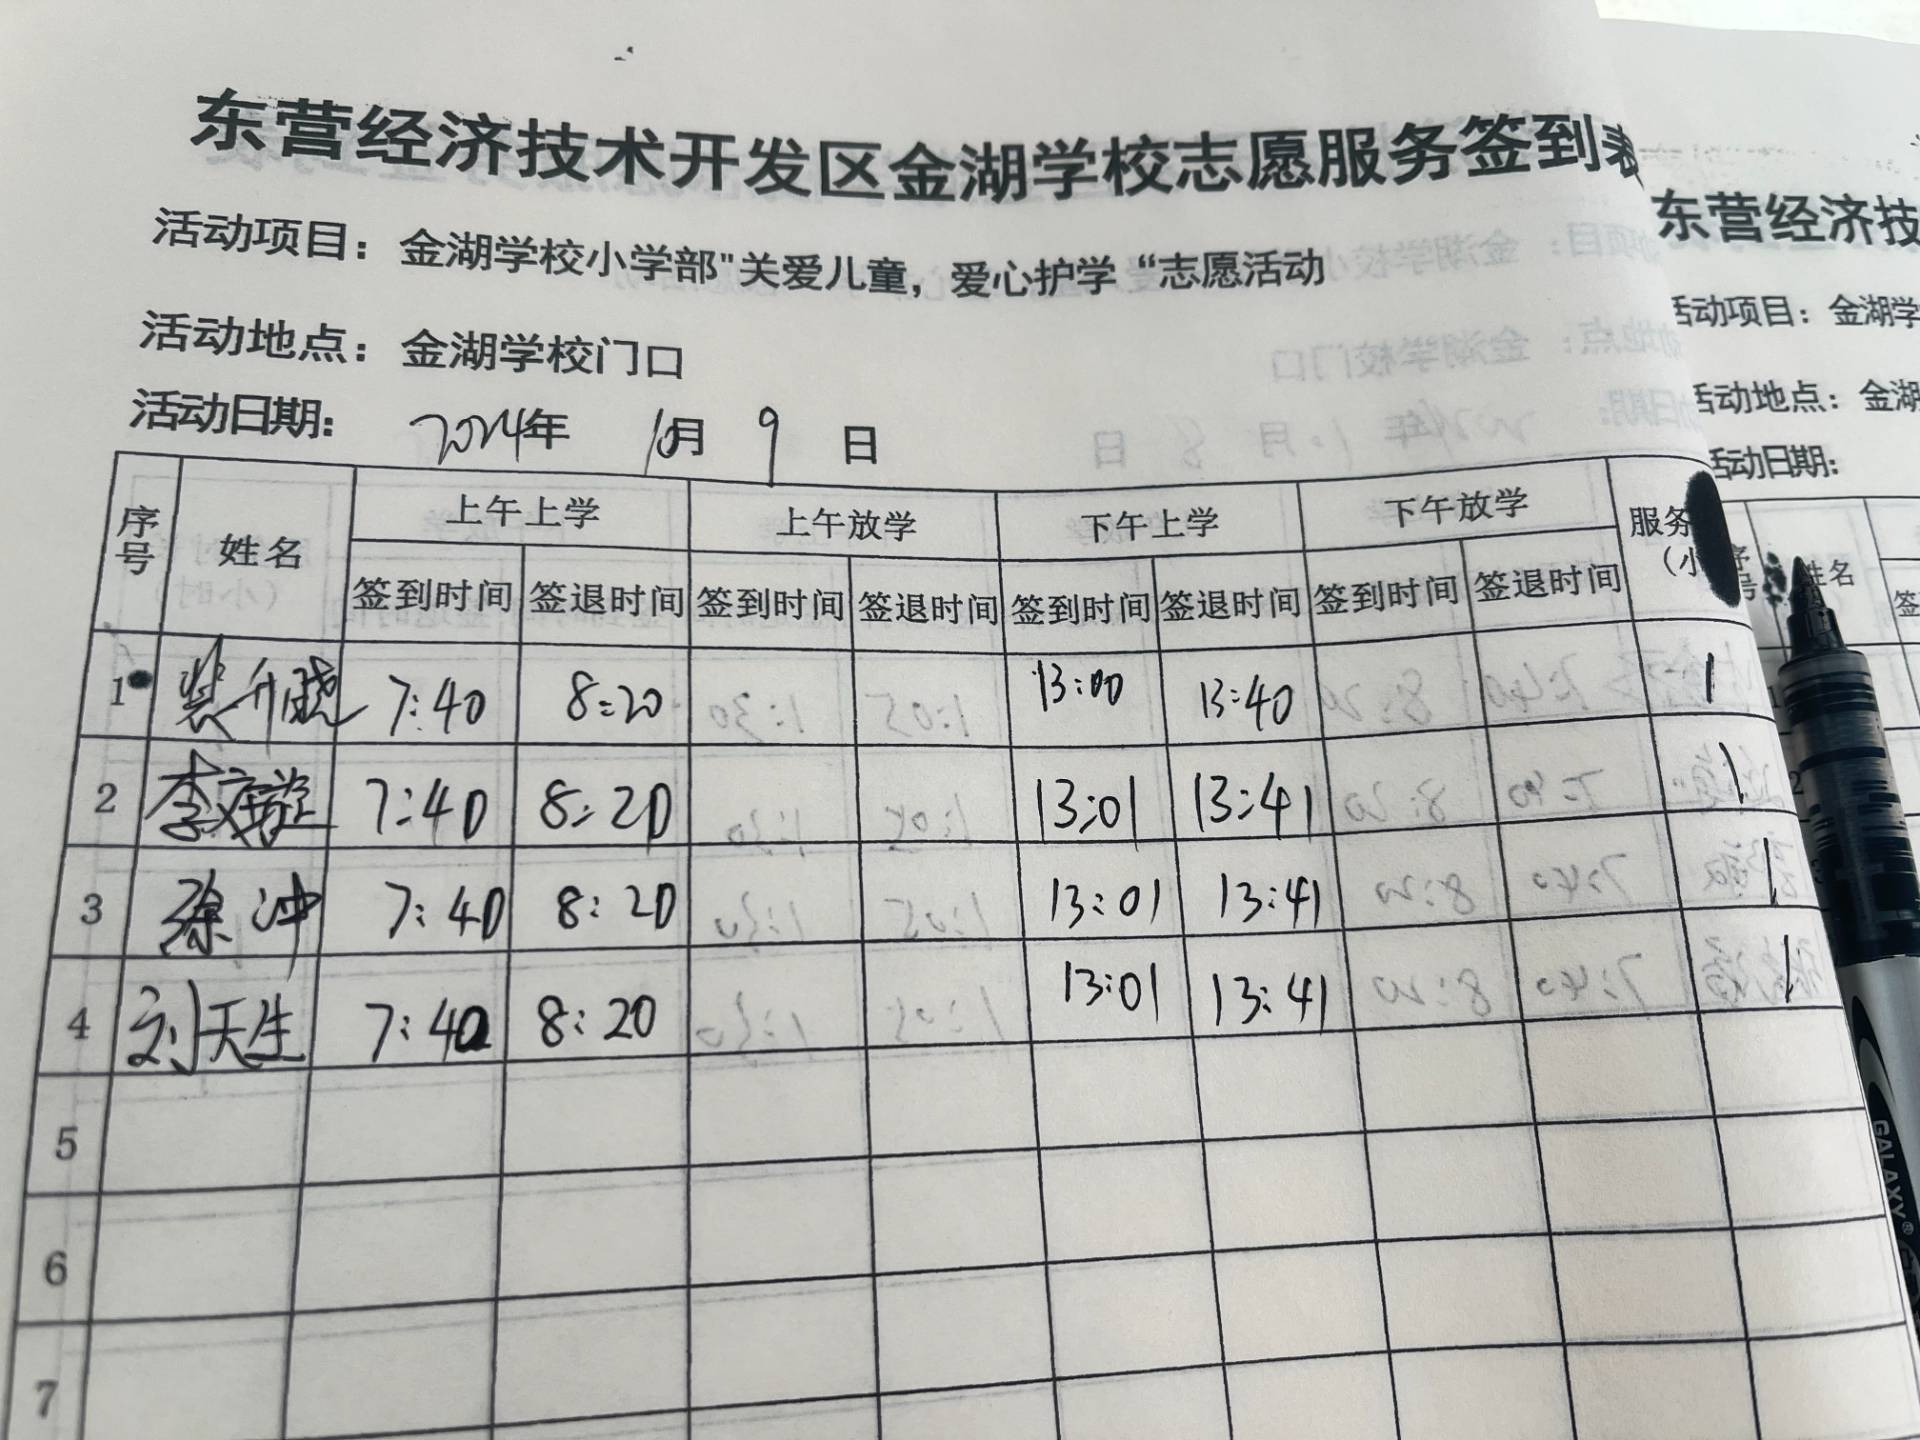 东营经济技术开发区金湖学校志愿服务签到表
活动项目：金湖学校小学部"关爱儿童，爱心护学“志愿活动
活动地点：金湖学校门口
活动日期： 2024年 10月 9 日
序号 姓名 上午上学 上午放学 下午上学 下午放学 服务
签到时间 签退时间 签到时间 签退时间 签到时间 签退时间 签到时间 签退时间 （小
1 7:40 8:20 13:00 13:40 1
2 7:40 8:20 13:01 13:41 1
3 徐冲 7:40 8:20 13:01 13:41 1
4 刘天生 7:40 8:20 13:01 13:41 1
5
6
7
东营经济技
活动项目：金湖学
活动地点：金湖
活动日期：
序号 姓名
签
1
2
GALAXY®